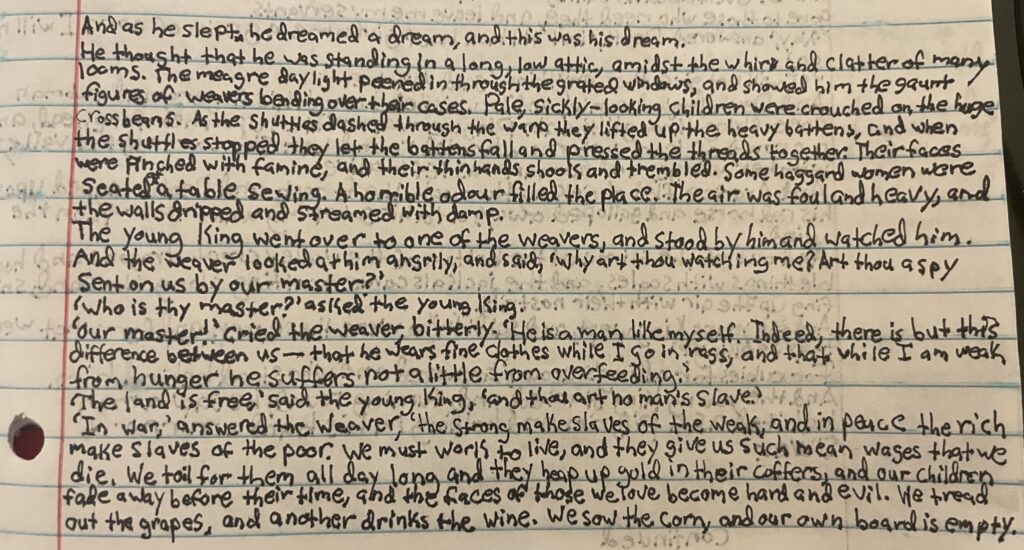 And as he slept he dreamed a dream, and this was his dream.
He thought that he was standing in a long, low attic, amidst the whirr and clatter of many
looms. The meagre daylight peered in through the grated windows, and showed him the gaunt
figures of weavers bending over their cases. Pale, sickly-looking children were crouched on the huge
crossbeams. As the shuttles dashed through the warp they lifted up the heavy battens, and when
the shuttles stopped they let the battens fall and pressed the threads together. Their faces
were pinched with famine, and their thin hands shook and trembled. Some haggard women were
seated at a table sewing. A horrible odour filled the place. The air was foul and heavy, and
the walls dripped and streamed with damp.
The young King went over to one of the weavers, and stood by him and watched him.
And the weaver looked at him angrily, and said, 'Why art thou watching me? Art thou a spy
sent on us by our master?'
'Who is thy master?' asked the young King.
'Our master!' cried the weaver bitterly. 'He is a man like myself. Indeed, there is but this
difference between us — that he wears fine clothes while I go in rags, and that while I am weak
from hunger he suffers not a little from overfeeding.'
'The land is free,' said the young King, 'and thou art no man's slave.'
'In war,' answered the weaver, 'the strong make slaves of the weak, and in peace the rich
make slaves of the poor. We must work to live, and they give us such mean wages that we
die. We toil for them all day long and they heap up gold in their coffers, and our children
fade away before their time, and the faces of those we love become hard and evil. We tread
out the grapes, and another drinks the wine. We sow the corn, and our own board is empty.